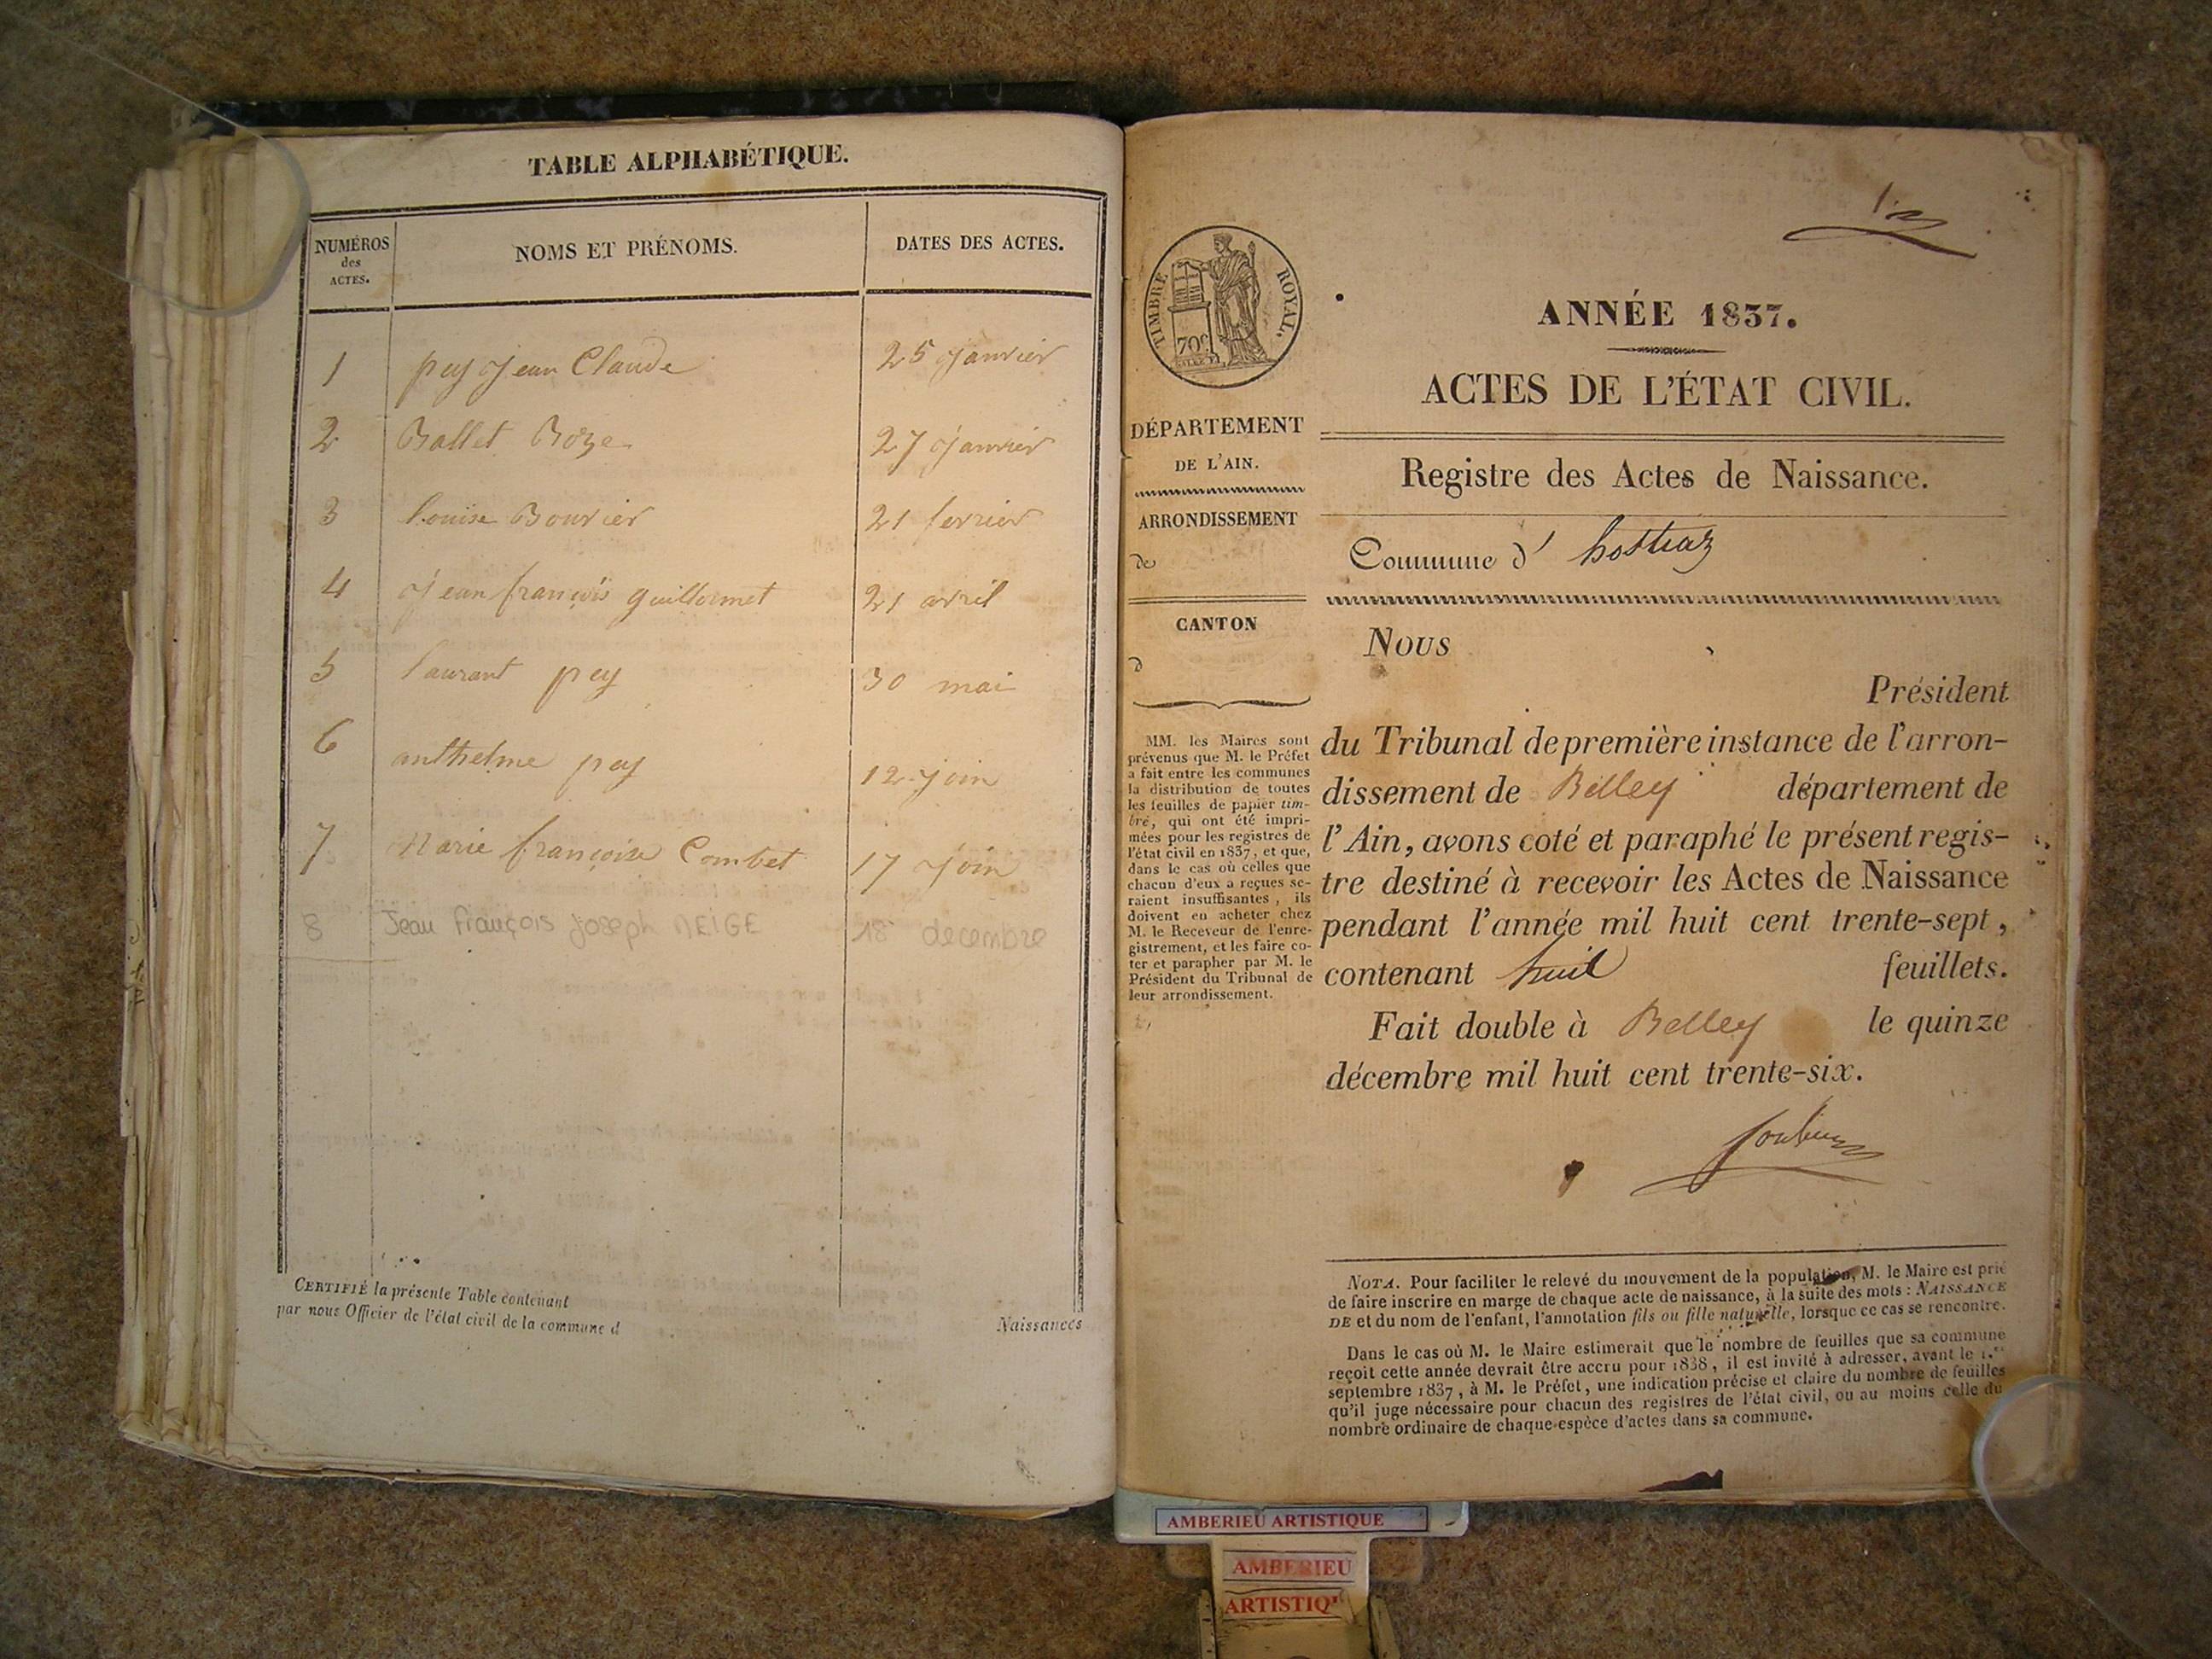 TABLE ALPHABÉTIQUE.
NUMÉROS
des
ACTES.
NOMS ET PRÉNOMS.
DATES DES ACTES.
1 pey Jean Claude 25 Janvier
2 Ballet Roze 27 Janvier
3 Louise Bouvier 21 fevrier
4 Jean françois guillermet 21 avril
5 laurant pey 30 mai
6 anthelme pey 12 join
7 Marie françoise Combet 17 join
8 Jean François Joseph NEIGE 18 decembre
CERTIFIÉ la présente Table contenant Naissances
par nous Officier de l'état civil de la commune d
TIMBRE ROYAL.
70c
DÉPARTEMENT
DE L'AIN.
ARRONDISSEMENT
de
CANTON
d
MM. les Maires sont
prévenus que M. le Préfet
a fait entre les communes
la distribution de toutes
les feuilles de papier tim-
bré, qui ont été impri-
mées pour les registres de
l'état civil en 1837, et que,
dans le cas où celles que
chacun d'eux a reçues se-
raient insuffisantes, ils
doivent en acheter chez
M. le Receveur de l'enre-
gistrement, et les faire co-
ter et parapher par M. le
Président du Tribunal de
leur arrondissement.
ANNÉE 1837.
ACTES DE L'ÉTAT CIVIL.
Registre des Actes de Naissance.
Commune d' hostiaz
Nous
Président
du Tribunal de première instance de l'arron-
dissement de Belley département de
l'Ain, avons coté et paraphé le présent regis-
tre destiné à recevoir les Actes de Naissance
pendant l'année mil huit cent trente-sept,
contenant huit feuillets.
Fait double à Belley le quinze
décembre mil huit cent trente-six.
NOTA. Pour faciliter le relevé du mouvement de la population, M. le Maire est prié
de faire inscrire en marge de chaque acte de naissance, à la suite des mots : NAISSANCE
DE et du nom de l'enfant, l'annotation fils ou fille naturelle, lorsque ce cas se rencontre.
Dans le cas où M. le Maire estimerait que le nombre de feuilles que sa commune
reçoit cette année devrait être accru pour 1838, il est invité à adresser, avant le 1.er
septembre 1837, à M. le Préfet, une indication précise et claire du nombre de feuilles
qu'il juge nécessaire pour chacun des registres de l'état civil, ou au moins celle du
nombre ordinaire de chaque espèce d'actes dans sa commune.
AMBERIEU ARTISTIQUE
AMBERIEU
ARTISTIQ